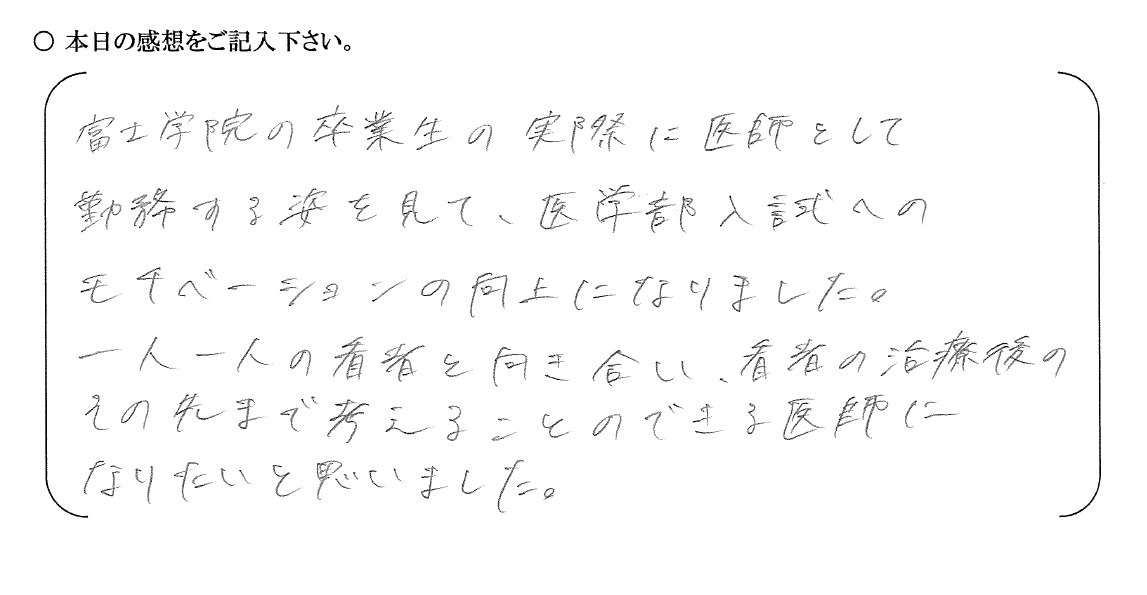 ○ 本日の感想をご記入下さい。
富士学院の卒業生の実際に医師として
勤務する姿を見て、医学部入試への
モチベーションの向上になりました。
一人一人の患者と向き合い、患者の治療後の
その先まで考えることのできる医師に
なりたいと思いました。